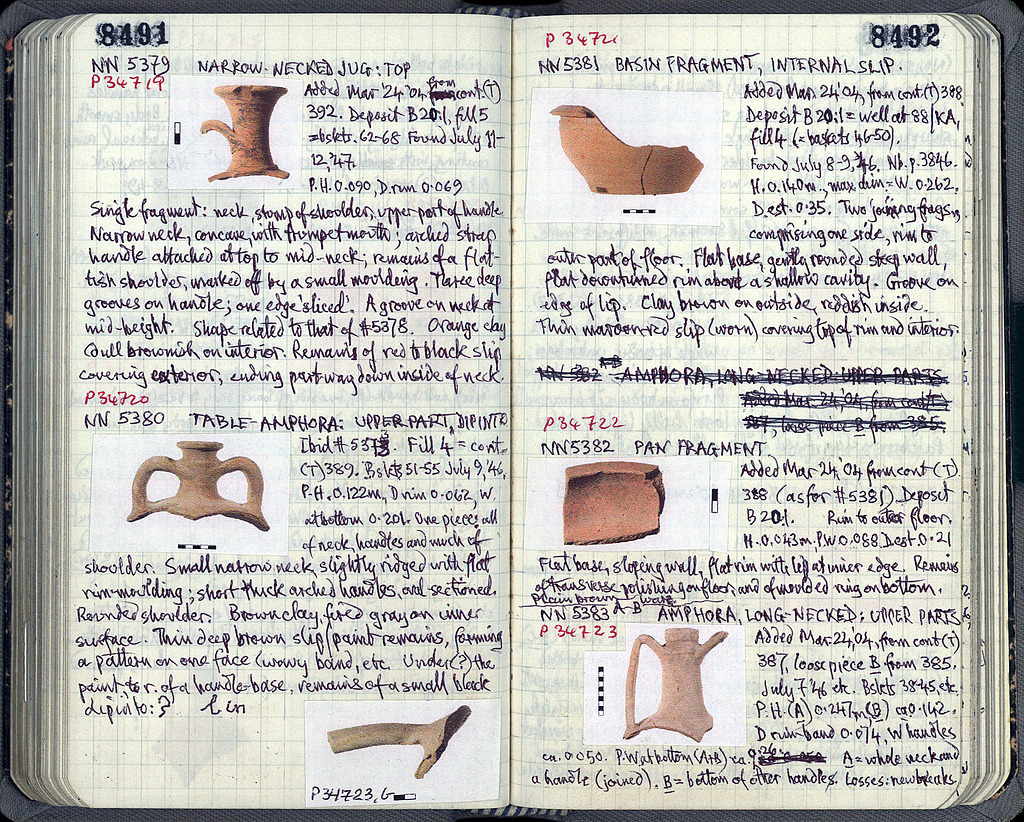 8491
NN 5379 NARROW-NECKED JUG: TOP
P 34719
Added Mar. 24 '04, from cont (T)
392. Deposit B 20:1, fill 5
= bskts. 62-68 Found July 11-
12, '47.
P.H. 0.090, D rim 0.069
Single fragment: neck, stump of shoulder, upper part of handle
Narrow neck, concave, with trumpet mouth; arched strap
handle attached at top to mid-neck; remains of a flat-
tish shoulder, marked off by a small moulding. Three deep
grooves on handle; one edge 'sliced'. A groove on neck at
mid-height. Shape related to that of #5378. Orange clay
dull brownish on interior. Remains of red to black slip
covering exterior, ending part way down inside of neck.
P34720
NN 5380 TABLE AMPHORA: UPPER PART, DIPINTO
Ibid # Fill 4 = cont.
(T) 389. Bskts 51-55 July 9, '46.
P.H. 0.122m, D rim 0.062, W.
at bottom 0.201. One piece: all
of neck, handles and much of
shoulder. Small narrow neck, slightly ridged with flat
rim-moulding; short thick arched handles, oval-sectioned.
Rounded shoulder. Brown clay, fired gray on inner
surface. Thin deep brown slip/paint remains, forming
a pattern on one face (wavy band, etc. Under (?) the
paint, to r. of a handle-base, remains of a small black
dipinto:
P34723, G
8492
P 34721
NN5381 BASIN FRAGMENT, INTERNAL SLIP.
Added Mar. 24 '04, from cont (T) 388
Deposit B 20:1 = well at 88/KA,
fill 4 (= baskets 46-50).
Found July 8-9, '46. Nb. p. 3846.
H. 0.140m., max dim = W. 0.262.
D est. 0.35. Two joining frags,
comprising one side, rim to
outer part of floor. Flat base, gently rounded steep wall,
flat downturned rim above a shallow cavity. Groove on
edge of lip. Clay brown on outside, reddish inside.
Thin maroon-red slip (worn) covering top of rim and interior.
A-B
NN 5382 AMPHORA, LONG-NECKED: UPPER PARTS
Added Mar. 24, '04, from cont (T)
387, loose piece B from 385.
P34722
NN5382 PAN FRAGMENT
Added Mar. 24 '04, from cont (T)
388 (as for #5381). Deposit
B 20:1. Rim to outer floor.
H. 0.043m, P.W. 0.088, D est. 0.21
Flat base, sloping wall, flat rim with lip at inner edge. Remains
of transverse polishing on floor, and of moulded ring on bottom.
Plain brown ware.
NN 5383 A-B AMPHORA, LONG-NECKED: UPPER PARTS
P 34723
Added Mar. 24, 04, from cont (T)
387, loose piece B from 385.
July 7 '46 etc. Bskts 38-45, etc.
P.H. (A) 0.247m, (B) ca 0.142.
D rim band 0.074, W handles
ca. 0.050. P.W. at bottom (A+B) ca. 0.26. A = whole neck and
a handle (joined). B = bottom of other handles. Losses: new breaks.